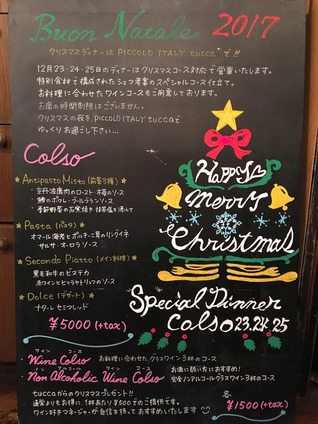 Buon Natale 2017
クリスマスディナーは PICCOLO ITALY tucca で!!
12月23・24・25日のディナーはクリスマスコース対応で営業いたします。
特別食材で構成されたシェフ渾身のスペシャルコース仕立て。
お料理に合わせたワインコースもご用意しております。
お席の時間制限はございません。
クリスマスの夜を、PICCOLO ITALY tuccaで
ゆっくりお過ごし下さい…
Colso
★ Antipasto Misto (前菜3種)
・京丹波鹿肉のロースト・苺のソース
・鱈のポワレ・クールブイヨンソース
・季節野菜の石窯焼き・抹茶塩を添えて
★ Pasta (パスタ)
オマール海老とポルチーニ茸のリングイネ
サルサ・オーロラソース
★ Secondo Piatto (メイン料理)
黒毛和牛のビステカ
★ Dolce (デザート)
ナターレ セミフレッド
¥5000 (+tax)
Happy &
Merry
Christmas
Special Dinner
Colso 23.24.25
ワイン コース
Wine Colso お料理に合わせた、グラスワイン3杯のコース
ノン アルコール ワイン コース
Non Alcoholic Wine Colso お酒に弱い方におすすめ!
完全ノンアルコールグラスワイン3杯のコース
tuccaからのクリスマスプレゼント!!
通常よりもお得に、1杯あたり¥500でのご提供です。
ワイン好きマネージャーが自信を持っておすすめいたします
各
¥1500(+tax)